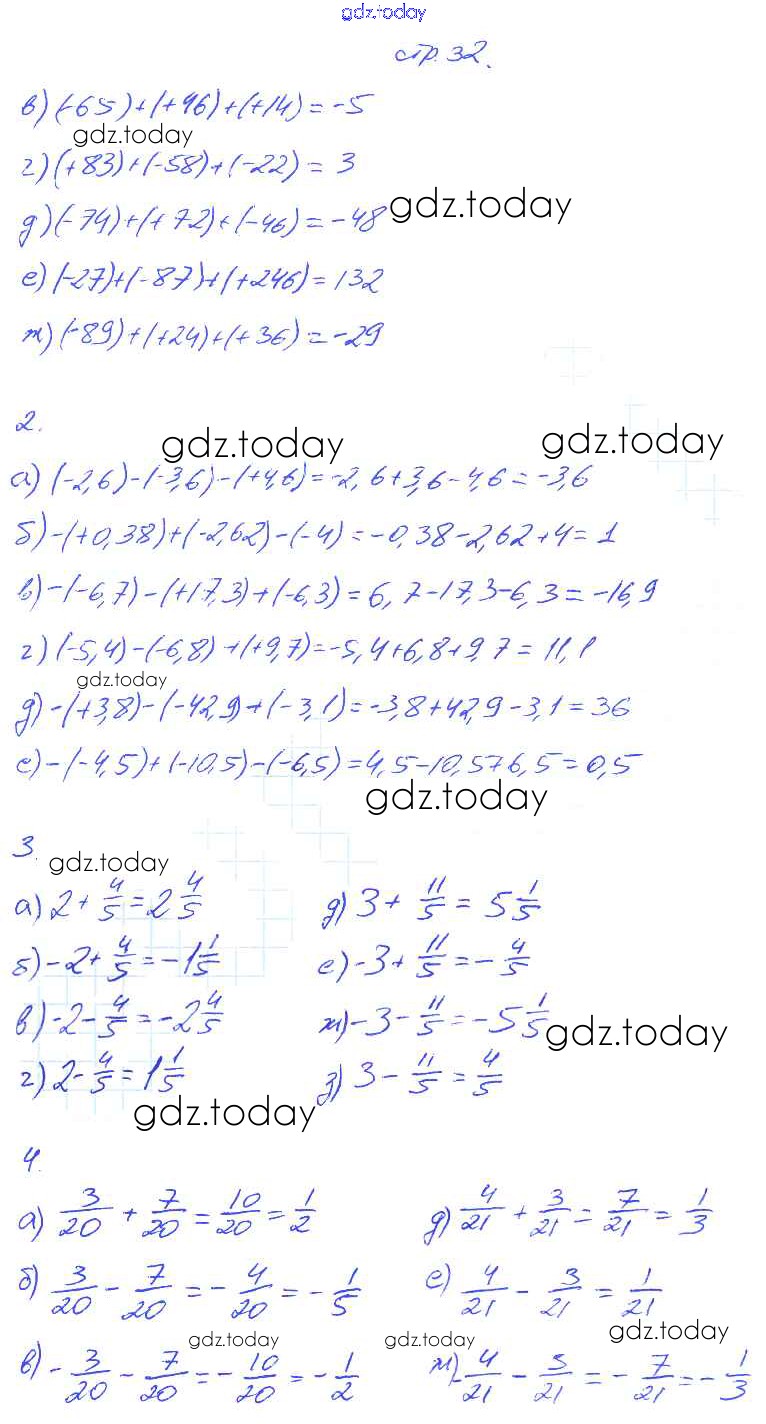 gdz.today
стр. 32.
в) (-65)+(+46)+(+14)=-5
gdz.today
г) (+83)+(-58)+(-22)=3
gdz.today
д) (-74)+(+72)+(-46)=-48
е) (-27)+(-87)+(+246)=132
ж) (-89)+(+24)+(+36)=-29
2.
gdz.today gdz.today
а) (-2,6)-(-3,6)-(+4,6)=-2,6+3,6-4,6=-3,6
б) -(+0,38)+(-2,62)-(-4)=-0,38-2,62+4=1
в) -(-6,7)-(+17,3)+(-6,3)=6,7-17,3-6,3=-16,9
г) (-5,4)-(-6,8)+(+9,7)=-5,4+6,8+9,7=11,1
gdz.today
д) -(+3,8)-(-42,9)+(-3,1)=-3,8+42,9-3,1=36
е) -(-4,5)+(-10,5)-(-6,5)=4,5-10,5+6,5=0,5
gdz.today
3.
gdz.today
а) 2+4/5=2 4/5 д) 3+11/5=5 1/5
б) -2+4/5=-1 1/5 е) -3+11/5=-4/5
в) -2-4/5=-2 4/5 ж) -3-11/5=-5 1/5
gdz.today
г) 2-4/5=1 1/5 з) 3-11/5=4/5
gdz.today
4.
а) 3/20+7/20=10/20=1/2 д) 4/21+3/21=7/21=1/3
б) 3/20-7/20=-4/20=-1/5 е) 4/21-3/21=1/21
gdz.today gdz.today gdz.today
в) -3/20-7/20=-10/20=-1/2 ж) -4/21-3/21=-7/21=-1/3